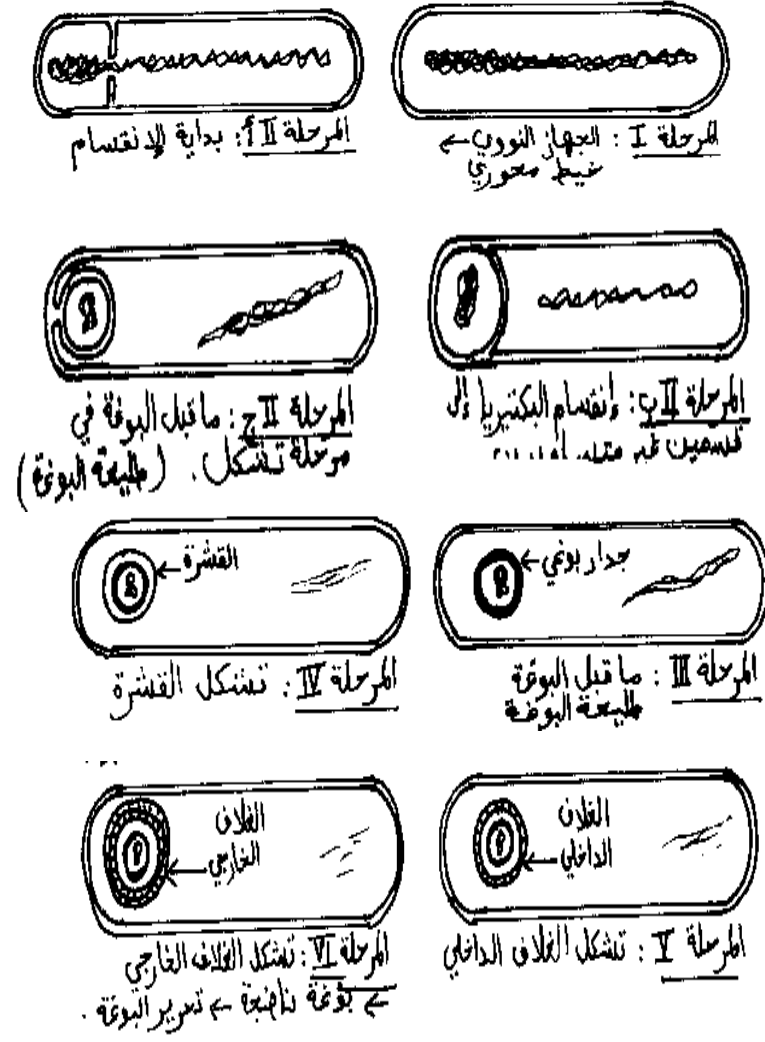 المرحلة I : الجهاز النووي ←
خيط محوري
المرحلة II أ: بداية الإنقسام
المرحلة II ب: إنقسام البكتيريا إلى
قسمين غير
المرحلة II ج: ما قبل البوغة في
مرحلة تشكل. (طليعة البوغة)
جدار بوغي ←
المرحلة III : ما قبل البوغة
طليعة البوغة
القشرة ←
المرحلة IV : تشكل القشرة
الغلاف
الداخلي ←
المرحلة V : تشكل الغلاف الداخلي
الغلاف
الخارجي ←
المرحلة VI : تشكل الغلاف الخارجي
← بوغة ناضجة ← تحرير البوغة .